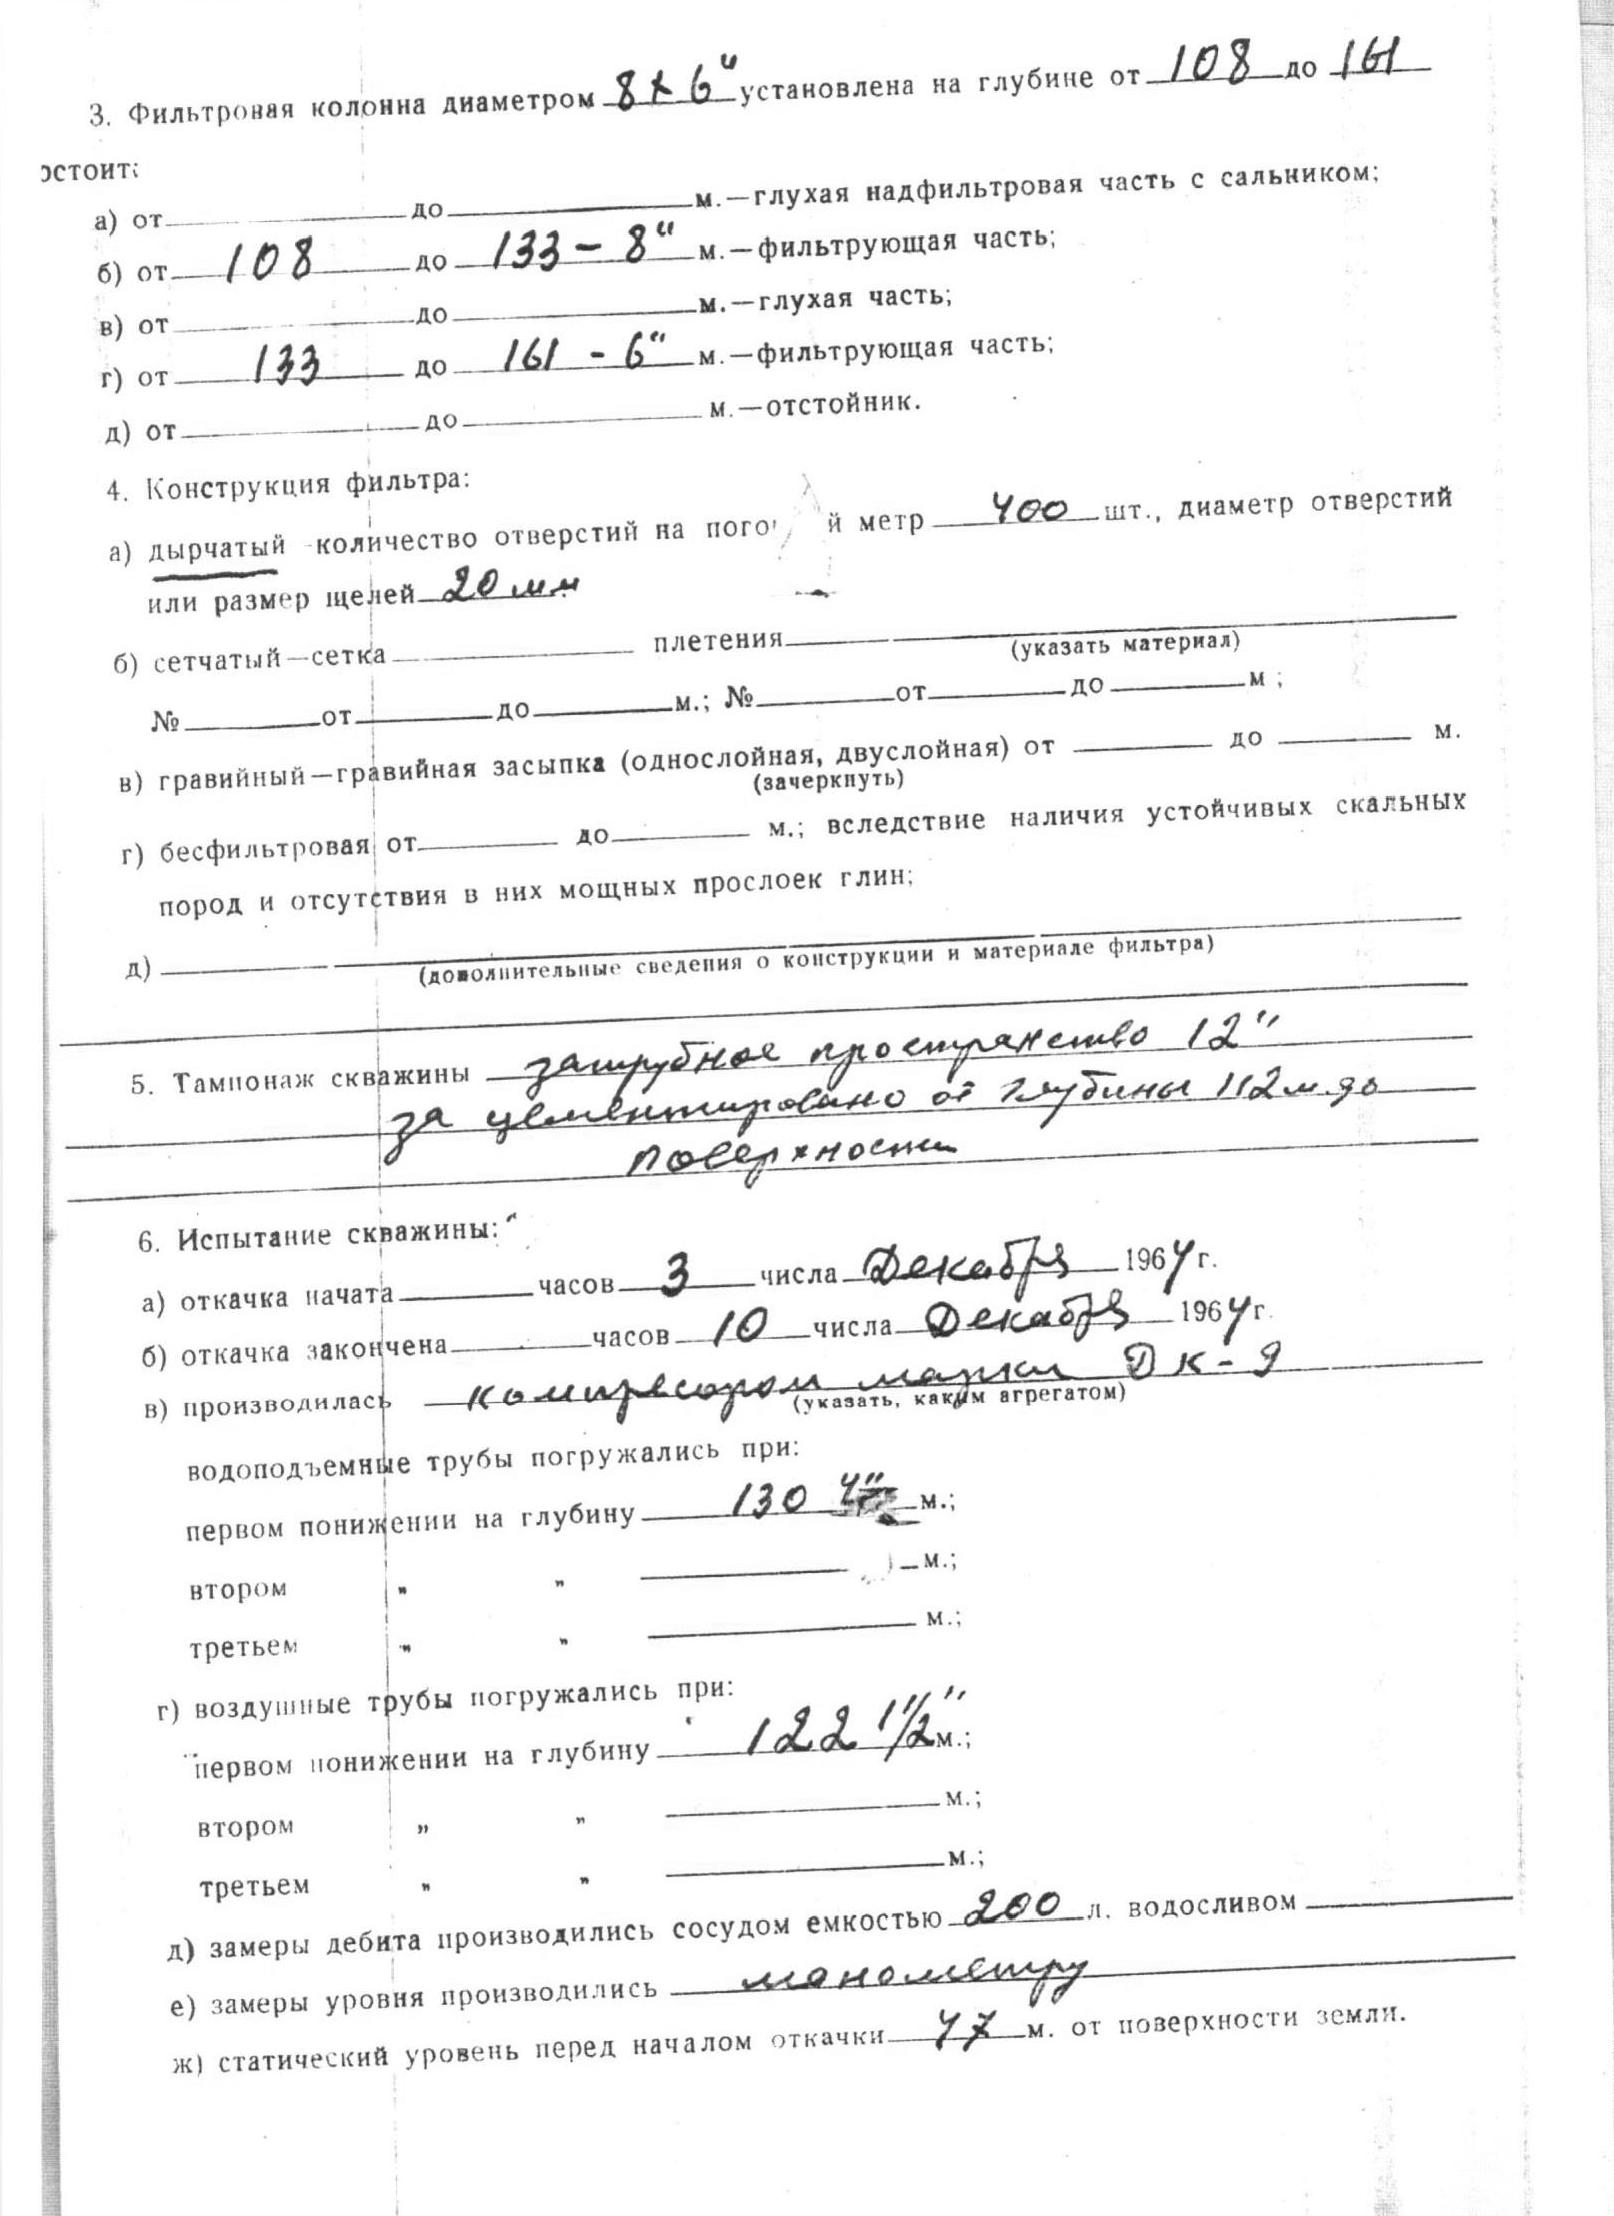 3. Фильтровая колонна диаметром 8 х 6" установлена на глубине от 108 до 161
остоит:
а) от ____ до ____ м.—глухая надфильтровая часть с сальником;
б) от 108 до 133 - 8" м.—фильтрующая часть;
в) от ____ до ____ м.—глухая часть;
г) от 133 до 161 - 6" м.—фильтрующая часть;
д) от ____ до ____ м.—отстойник.
4. Конструкция фильтра:
а) дырчатый -количество отверстий на пого й метр 400 шт., диаметр отверстий
или размер щелей 20 мм
б) сетчатый—сетка ____ плетения ____
(указать материал)
№ ____ от ____ до ____ м.; № ____ от ____ до ____ м ;
в) гравийный—гравийная засыпка (однослойная, двуслойная) от ____ до ____ м.
(зачеркнуть)
г) бесфильтровая от ____ до ____ м.; вследствие наличия устойчивых скальных
пород и отсутствия в них мощных прослоек глин;
д) ____
(дополнительные сведения о конструкции и материале фильтра)
5. Тампонаж скважины затрубное пространство 12"
за цементировано от глубины 112 м. до
поверхности
6. Испытание скважины:
а) откачка начата ____ часов 3 числа Декабря 1964 г.
б) откачка закончена ____ часов 10 числа Декабря 1964 г.
в) производилась компресором марки ДК-9
(указать, каким агрегатом)
водоподъемные трубы погружались при:
первом понижении на глубину 130 4" м.;
втором " " ____ м.;
третьем " " ____ м.;
г) воздушные трубы погружались при:
первом понижении на глубину 122 1 1/2" м.;
втором " " ____ м.;
третьем " " ____ м.;
д) замеры дебита производились сосудом емкостью 200 л. водосливом ____
е) замеры уровня производились манометру
ж) статический уровень перед началом откачки 47 м. от поверхности земли.